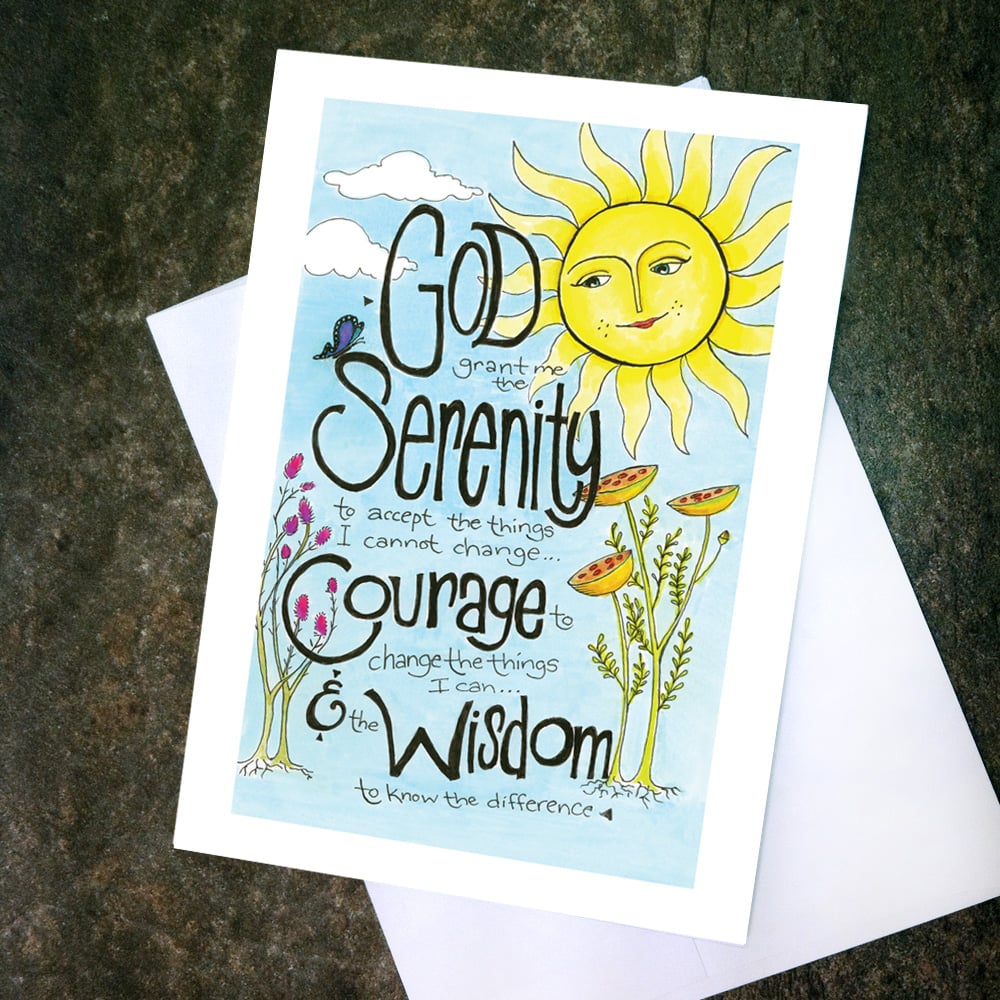 GOD
grant me
the
Serenity
to accept the things
I cannot change...
Courage to
change the things
I can...
& the Wisdom
to know the difference